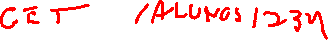 CET /ALUNOS/234